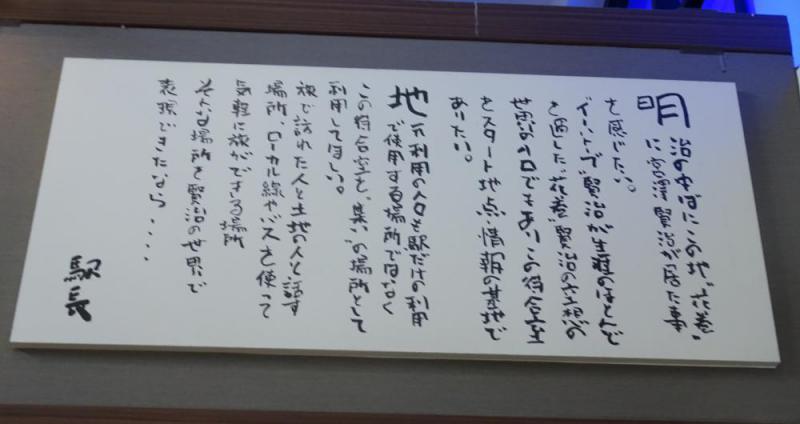 明治の中頃にこの地“花巻”
に宮澤賢治が居た事
を感じたい。
“イーハトーブ”賢治が生涯のほとんど
を過した“花巻”賢治の空想の
世界の入口でもあり、この待合室
をスタート地点・情報の基地で
ありたい。
地元利用の人々も駅だけの利用
で使用する場所ではなく
この待合室を“集い”の場所として
利用してほしい。
旅で訪れた人と土地の人と話す
場所、ローカル線やバスを使って
気軽に旅ができる場所
そんな場所を賢治の世界で
表現できたなら・・・・
駅長